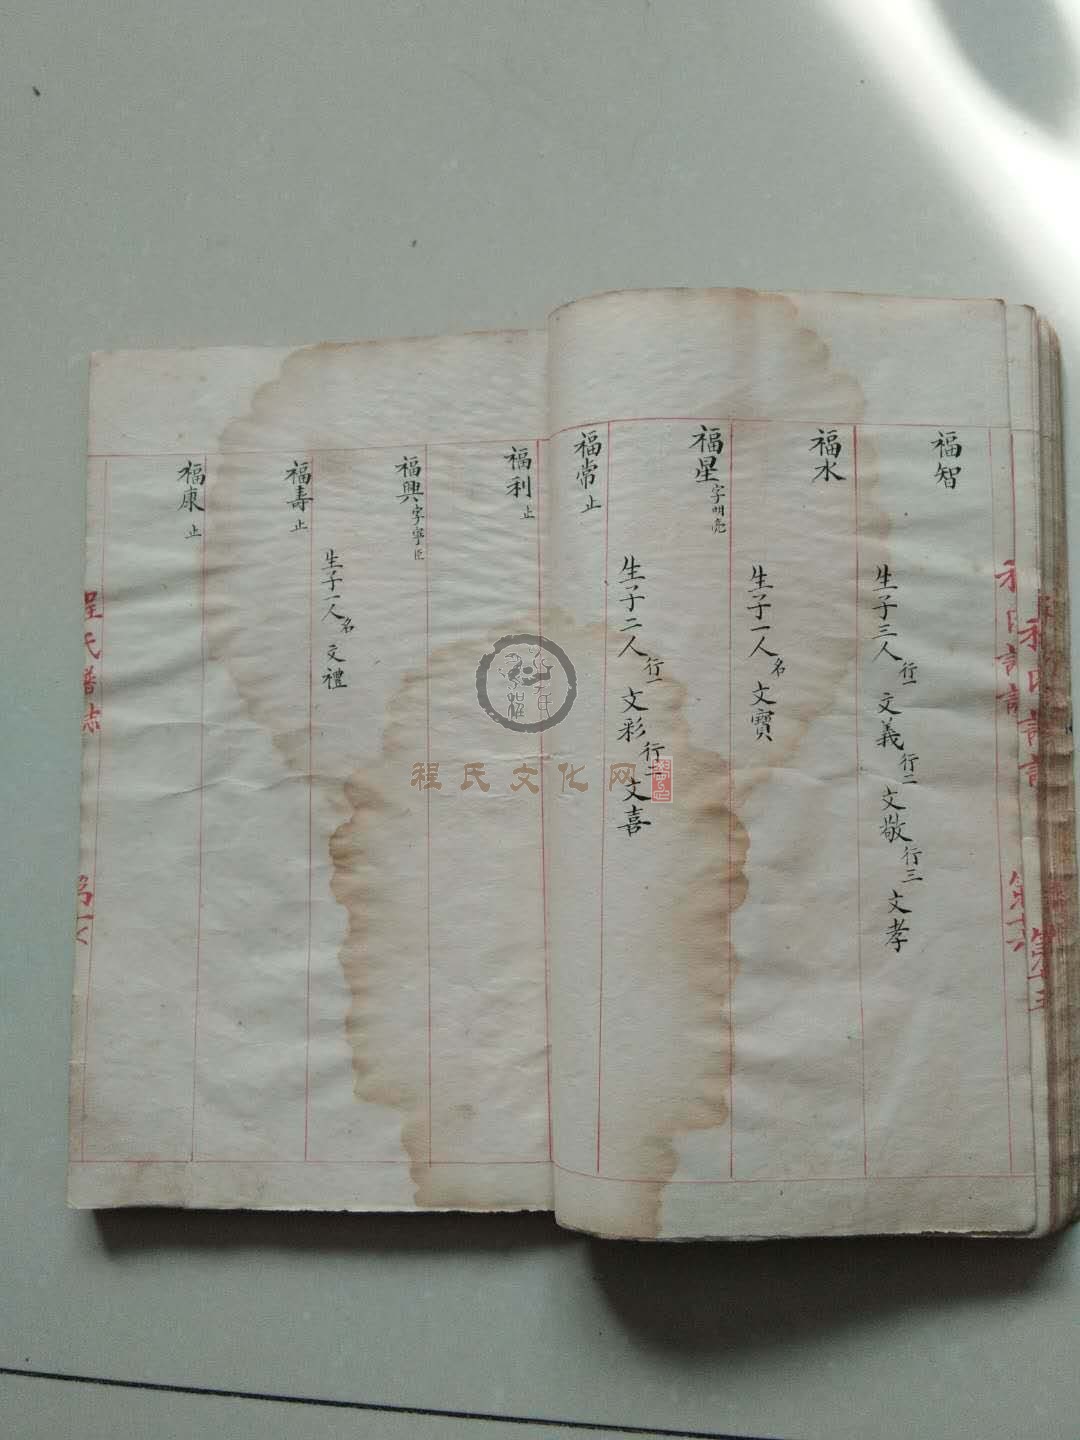 福智
生子三人行一文義行二文敬行三文孝
福水
生子一人名文寶
福星字明亮
生子二人行一文彩行二文喜
福常止
福利止
福興字寧臣
生子一人名文禮
福壽止
福康止
程氏譜志
程氏文化网